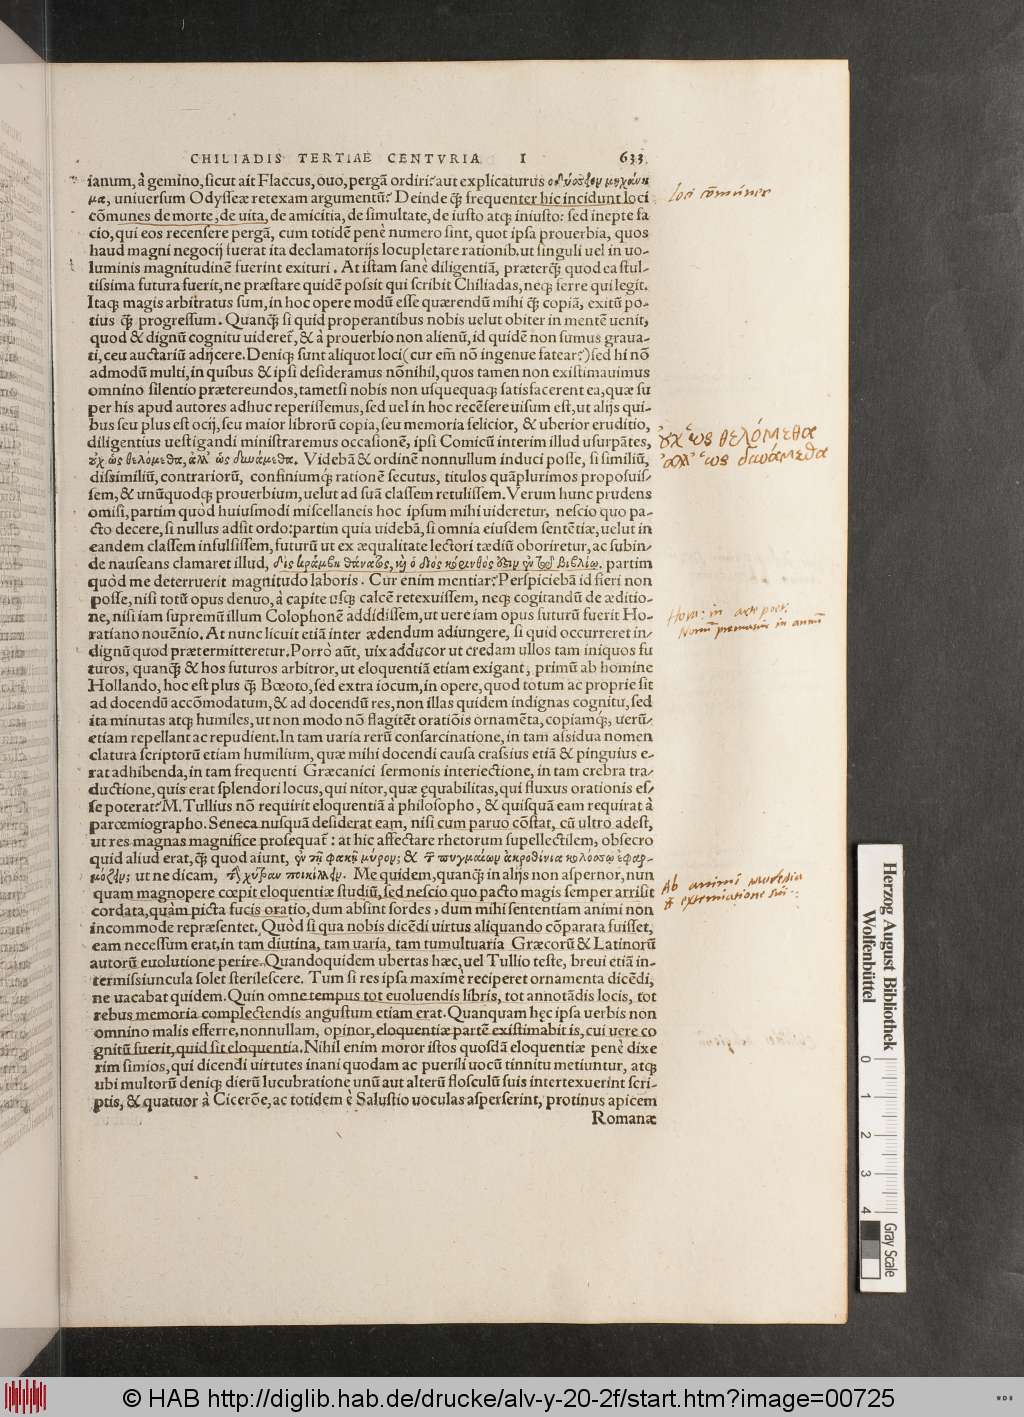 CHILIADIS TERTIAE CENTVRIA I 633
ianum, à gemino, sicut ait Flaccus, ouo, pergã ordiri? aut explicaturus
μα, uniuersum Odysseæ retexam argumentũ? Deinde q̃ȝ frequenter hic incidunt loci
cõmunes de morte, de uita, de amicitia, de simultate, de iusto atqȝ iniusto: sed inepte fa
cio, qui eos recensere pergã, cum totidẽ penè numero sint, quot ipsa prouerbia, quos
haud magni negocij fuerat ita declamatorijs locupletare rationib. ut singuli uel in uo-
luminis magnitudinẽ fuerint exituri. At istam sanè diligentiã, præterq̃ȝ quod ea stul-
tissima futura fuerit, ne præstare quidẽ possit qui scribit Chiliadas, neqȝ ferre qui legit.
Itaqȝ magis arbitratus sum, in hoc opere modũ esse quærendũ mihi q̃ȝ copiã, exitũ po-
tius q̃ȝ progressum. Quanq̃ȝ si quid properantibus nobis uelut obiter in mentẽ uenit,
quod & dignũ cognitu uideret̃, & à prouerbio non alienũ, id quidẽ non sumus graua-
ti, ceu auctariũ adijcere. Deniqȝ sunt aliquot loci (cur em̃ nõ ingenue fatear?) sed hi nõ
admodũ multi, in quibus & ipsi desideramus nõnihil, quos tamen non existimauimus
omnino silentio prætereundos, tametsi nobis non usquequaqȝ satisfacerent ea, quæ su
per his apud autores adhuc reperissemus, sed uel in hoc recẽsere uisum est, ut alijs qui-
bus seu plus est ocij, seu maior librorũ copia, seu memoria felicior, & uberior eruditio,
diligentius uestigandi ministraremus occasionẽ, ipsi Comicũ interim illud usurpãtes,
οὐχ ὡς θελόμεθα, ἀλλ' ὡς δυνάμεθα. Videbã & ordinẽ nonnullum induci posse, si similiũ,
dissimiliũ, contrariorũ, confiniumq́ȝ rationẽ secutus, titulos quãplurimos proposuis-
sem, & unũquodqȝ prouerbium, uelut ad suã classem retulissem. Verum hunc prudens
omisi, partim quòd huiusmodi miscellaneis hoc ipsum mihi uideretur, nescio quo pa-
cto decere, si nullus adsit ordo: partim quia uidebã, si omnia eiusdem sentẽtiæ, uelut in
eandem classem infulsissem, futurũ ut ex æqualitate lectori tædiũ oboriretur, ac subin-
de nauseans clamaret illud, δὶς κράμβη θάνατος, καὶ ὁ διὸς κόρινθος partim
quòd me deterruerit magnitudo laboris. Cur enim mentiar? Perspiciebã id fieri non
posse, nisi totũ opus denuo, à capite usqȝ calcẽ retexuissem, neqȝ cogitandũ de æditio-
ne, nisi iam supremũ illum Colophonẽ addidissem, ut uere iam opus futurũ fuerit Ho-
ratiano nouẽnio. At nunc licuit etiã inter ædendum adiungere, si quid occurreret in-
dignũ quod prætermitteretur. Porrò aũt, uix adducor ut credam ullos tam iniquos fu
turos, quanq̃ȝ & hos futuros arbitror, ut eloquentiã etiam exigant, primũ ab homine
Hollando, hoc est plus q̃ȝ Bœoto, sed extra iocum, in opere, quod totum ac proprie sit
ad docendũ accõmodatum, & ad docendũ res, non illas quidem indignas cognitu, sed
ita minutas atqȝ humiles, ut non modo nõ flagitẽt oratiõis ornamẽta, copiamq́ȝ, uerũ-
etiam repellant ac repudient. In tam uaria rerũ consarcinatione, in tam assidua nomen
clatura scriptorũ etiam humilium, quæ mihi docendi causa crassius etiã & pinguius e-
rat adhibenda, in tam frequenti Græcanici sermonis interiectione, in tam crebra tra-
ductione, quis erat splendori locus, qui nitor, quæ ęquabilitas, qui fluxus orationis es-
se poterat? M. Tullius nõ requirit eloquentiã à philosopho, & quisquã eam requirat à
parœmiographo. Seneca nusquã desiderat eam, nisi cum paruo cõstat, cũ ultro adest,
ut res magnas magnifice prosequat̃: at hic affectare rhetorum supellectilem, obsecro
quid aliud erat, q̃ȝ quod aiunt, ἐν τῇ φακῇ μύρον; & τὰ πυγμαίων ἀκροθίνια κολόσσῳ ἐφαρ-
μόζειν; ut ne dicam, τὴν χύτραν ποικίλλειν. Me quidem, quanq̃ȝ in alijs non aspernor, nun
quam magnopere cœpit eloquentiæ studiũ, sed nescio quo pacto magis semper arrisit
cordata, quàm picta fucis oratio, dum absint sordes, dum mihi sententiam animi non
incommode repræsentet. Quòd si qua nobis dicẽdi uirtus aliquando cõparata fuisset,
eam necessum erat, in tam diutina, tam uaria, tam tumultuaria Græcorũ & Latinorũ
autorũ euolutione perire. Quandoquidem ubertas hæc, uel Tullio teste, breui etiã in-
termissiuncula solet sterilescere. Tum si res ipsa maximè reciperet ornamenta dicẽdi,
ne uacabat quidem. Quin omne tempus tot euoluendis libris, tot annotãdis locis, tot
rebus memoria complectendis angustum etiam erat. Quanquam hęc ipsa uerbis non
omnino malis efferre, nonnullam, opinor, eloquentiæ partẽ existimabit is, cui uere co
gnitũ fuerit, quid sit eloquentia. Nihil enim moror istos quosdã eloquentiæ penè dixe
rim simios, qui dicendi uirtutes inani quodam ac puerili uocũ tinnitu metiuntur, atqȝ
ubi multorũ deniqȝ dierũ lucubratione unũ aut alterũ flosculũ suis intertexuerint scri-
ptis, & quatuor à Cicerõe, ac totidem è Salustio uoculas asperserint, protinus apicem
Romanæ
loci cõmunes
οὐχ ὡς θελόμεθα
ἀλλ' ὡς δυνάμεθα
Hora: in arte poet.
Nonum prematur in annũ
Ab animi modestia
extenuatione sui
Herzog August Bibliothek
Wolfenbüttel
0 1 2 3 4
Gray Scale
© HAB http://diglib.hab.de/drucke/alv-y-20-2f/start.htm?image=00725